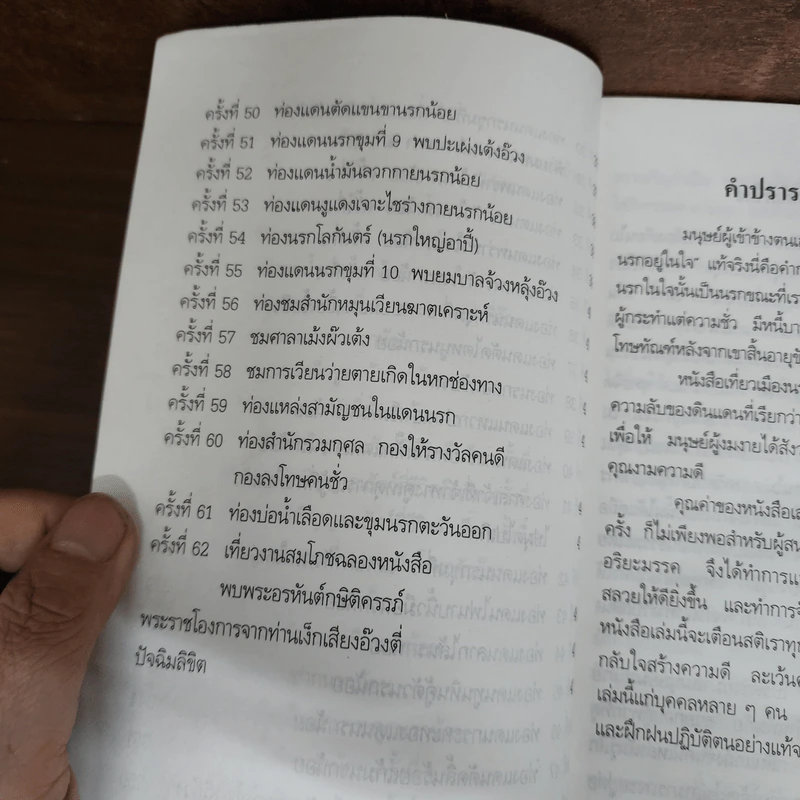 ครั้งที่ 50 ท่องแดนตัดแขนขานรกน้อย
ครั้งที่ 51 ท่องแดนนรกขุมที่ 9 พบปะเผ่งเต้งอ๊วง
ครั้งที่ 52 ท่องแดนน้ำมันลวกกายนรกน้อย
ครั้งที่ 53 ท่องแดนงูแดงเจาะไชร่างกายนรกน้อย
ครั้งที่ 54 ท่องนรกโลกันตร์ (นรกใหญ่อาปี้)
ครั้งที่ 55 ท่องแดนนรกขุมที่ 10 พบยมบาลจ้วงหลุ้งอ๊วง
ครั้งที่ 56 ท่องชมสำนักหมุนเวียนฆาตเคราะห์
ครั้งที่ 57 ชมศาลาเม้งผ๊วเต้ง
ครั้งที่ 58 ชมการเวียนว่ายตายเกิดในหกช่องทาง
ครั้งที่ 59 ท่องแหล่งสามัญชนในแดนนรก
ครั้งที่ 60 ท่องสำนักรวมกุศล กองให้รางวัลคนดี
กองลงโทษคนชั่ว
ครั้งที่ 61 ท่องบ่อน้ำเลือดและขุมนรกตะวันออก
ครั้งที่ 62 เที่ยวงานสมโภชฉลองหนังสือ
พบพระอรหันต์กษิติครรภ์
พระราชโองการจากท่านเง็กเสียงอ๊วงตี่
ปัจฉิมลิขิต
คำปรา
มนุษย์ผู้เข้าข้างตน
นรกอยู่ในใจ" แท้จริงนี่คือคำ
นรกในใจนั้นเป็นนรกขณะที่เรา
ผู้กระทำแต่ความชั่ว มีหนี้บา
โทษทัณฑ์หลังจากเขาสิ้นอายุขั
หนังสือเที่ยวเมืองน
ความลับของดินแดนที่เรียกว่า
เพื่อให้ มนุษย์ผู้งมงายได้สังว
คุณงามความดี
คุณค่าของหนังสือเล
ครั้ง ก็ไม่เพียงพอสำหรับผู้สน
อริยะมรรค จึงได้ทำการแ
สลวยให้ดียิ่งขึ้น และทำการจั
หนังสือเล่มนี้จะเตือนสติเราทุ
กลับใจสร้างความดี ละเว้น
เล่มนี้แก่บุคคลหลาย ๆ คน
และฝึกฝนปฏิบัติตนอย่างแท้จ